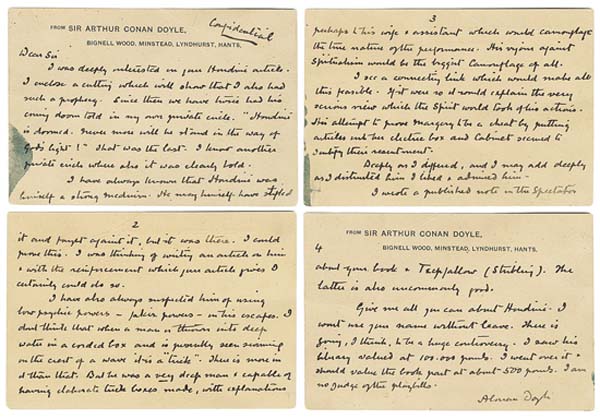 Confidential
FROM SIR ARTHUR CONAN DOYLE,
BIGNELL WOOD, MINSTEAD, LYNDHURST, HANTS.
Dear Sir
I was deeply interested in your Houdini article.
I enclose a cutting which will show that I also had
such a prophecy. Since then we have twice had his
coming doom told in my own private circle. "Houdini
is doomed. Never more will he stand in the way of
God's light!" That was the last. I know another
private circle where also it was clearly told.
I have always known that Houdini was
himself a strong medium. He may himself have stifled
2
it and fought against it, but it was there. I could
prove this. I was thinking of writing an article on him
& with the reinforcement which your article gives I
certainly could do so.
I have also always suspected him of using
low psychic powers - fakir powers - in his escapes. I
don't think that when a man is thrown into deep
water in a corded box and is presently seen swimming
on the crest of a wave it is a "trick". There is more in
it than that. But he was a very deep man & capable of
having elaborate trick boxes made, with explanations
3
perhaps to his wife & assistant which would camouflage
the true nature of the performance. His vigour against
Spiritualism would be the biggest Camouflage of all.
I see a connecting link which would make all
this feasible. If it were so it would explain the very
serious view which the Spirit world took of his actions.
His attempt to prove Margery to be a cheat by putting
articles into her electric box and Cabinet seemed to
their resentment.
Deeply as I differed, and I may add deeply
as I distrusted him I liked & admired him -
I wrote a published note in the Spectator
FROM SIR ARTHUR CONAN DOYLE,
BIGNELL WOOD, MINSTEAD, LYNDHURST, HANTS.
4
about your book & Teeftallow (Stribling). The
latter is also uncommonly good.
Give me all you can about Houdini. I
wont use your name without leave. There is
going, I think, to be a huge controversy. I saw his
library valued at 100.000 pounds. I went over it &
should value the book part at about 500 pounds. I am
no judge of the playbills.
A Conan Doyle